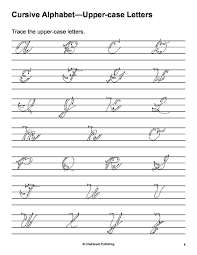 Cursive Alphabet—Upper-case Letters
Trace the upper-case letters.
A B C D
E F G H
I J K L
M N O
P Q R S
T U V W
X Y Z
© Chalkboard Publishing